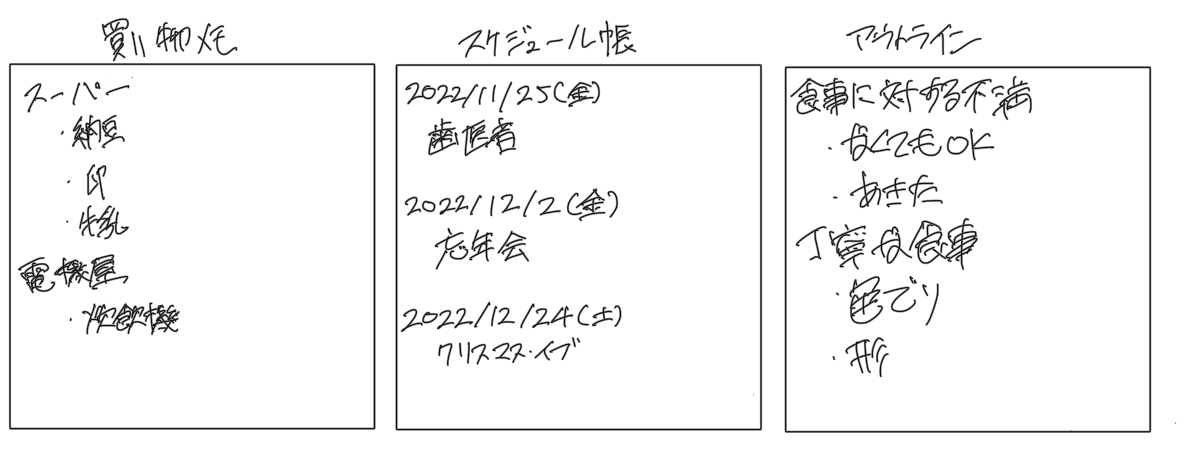 買い物メモ
スーパー
・納豆
・卵
・牛乳
電機屋
・炊飯機
スケジュール帳
2022/11/25(金)
歯医者
2022/12/2(金)
忘年会
2022/12/24(土)
クリスマス・イブ
アウトライン
食事に対する不満
・なくてもOK
・あきた
丁寧な食事
・色どり
・形